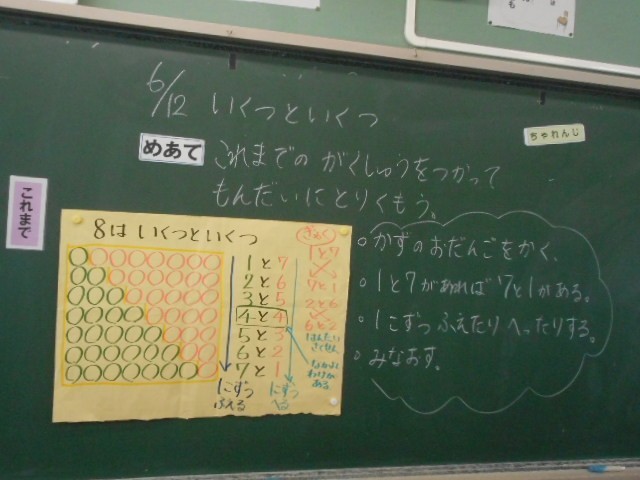 6/12 いくつといくつ
ちゃれんじ
めあて これまでの がくしゅうをつかって
もんだいにとりくもう。
これまで
8は いくつといくつ
1と7
2と6
3と5
4と4
5と3
6と2
7と1
ずつ
ふえる
ずつ
へる
ぎゃく
1と7
7と1
2と6
6と2
はんたい
さくせん
なかよく
わけが
ある
・かずのおだんごをかく、
・1と7があれば7と1がある。
・1こずつ ふえたり へったりする。
・みなおす。